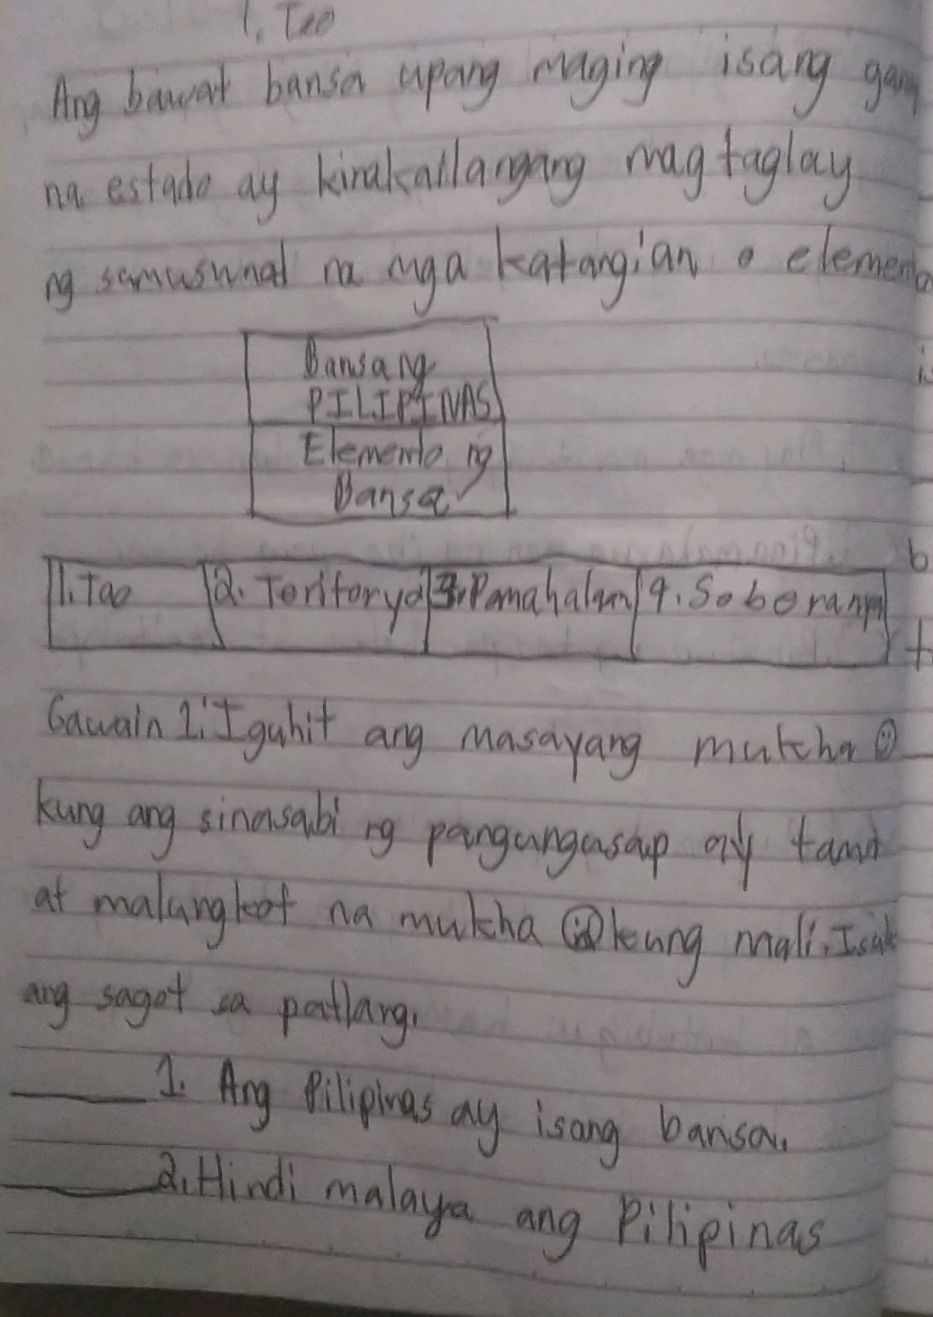 1. Tao
Ang bawat bansa upang maging isang
na estado ay kinakailangang magtaglay
ng sumusunod na mga katangian o elemento
Bansang
PILIPINAS
Elemento ng
Bansa
1. Tao 2. Teritoryo 3. Pamahalaan 4. Soberanya
Gawain 1: Iguhit ang masayang mukha ☺
kung ang sinasabi ng pangungusap ay tama
at malungkot na mukha ☹ kung mali. Isulat
ang sagot sa patlang.
_____ 1. Ang Pilipinas ay isang bansa.
_____ 2. Hindi malaya ang Pilipinas